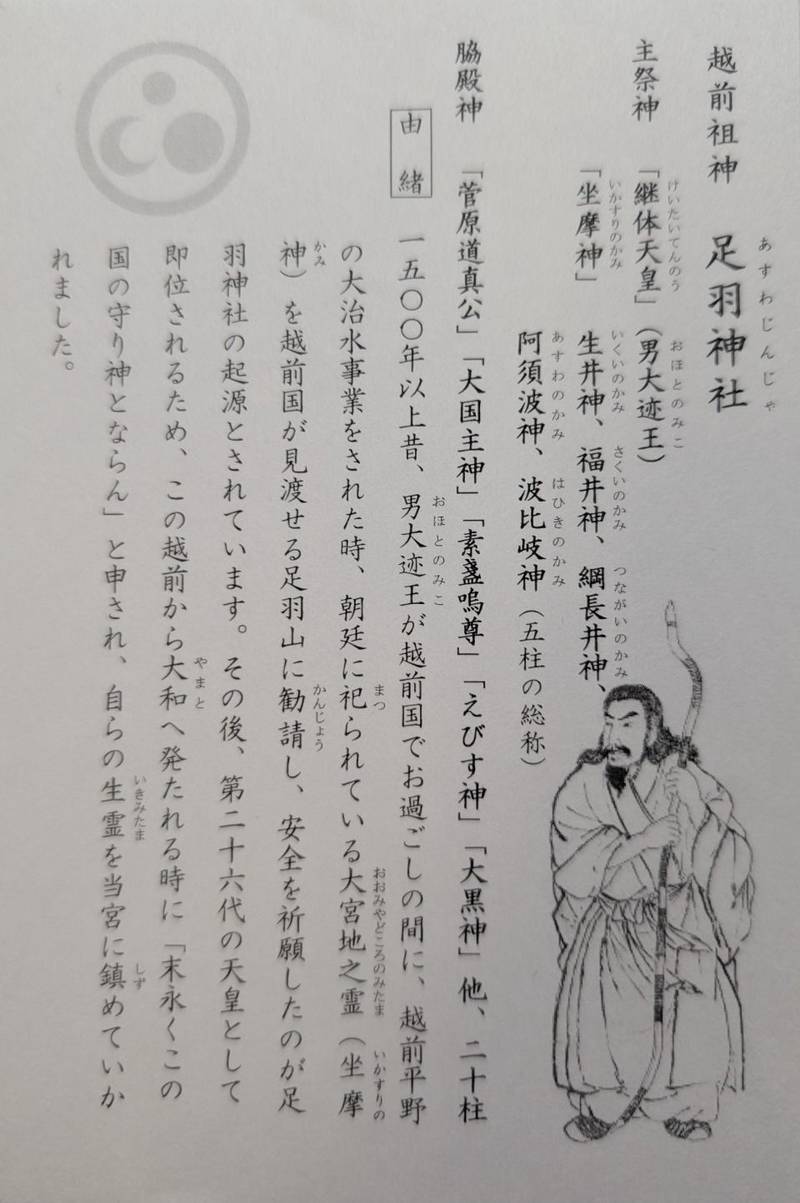 越前祖神 足羽神社
あすわじんじゃ
主祭神 「継体天皇」（男大迹王）
けいたいてんのう おほとのみこ
「坐摩神」 生井神、福井神、綱長井神、
いかすりのかみ いくいのかみ さくいのかみ つながいのかみ
阿須波神、波比岐神（五柱の総称）
あすわのかみ はひきのかみ
脇殿神 「菅原道真公」「大国主神」「素盞嗚尊」「えびす神」「大黒神」他、二十柱
由緒 一五〇〇年以上昔、男大迹王が越前国でお過ごしの間に、越前平野
おほとのみこ
の大治水事業をされた時、朝廷に祀られている大宮地之霊（坐摩
まつ おおみやどころのみたま いかすりの
神）を越前国が見渡せる足羽山に勧請し、安全を祈願したのが足
かみ かんじょう
羽神社の起源とされています。その後、第二十六代の天皇として
即位されるため、この越前から大和へ発たれる時に「末永くこの
やまと
国の守り神とならん」と申され、自らの生霊を当宮に鎮めていか
いきみたま しず
れました。